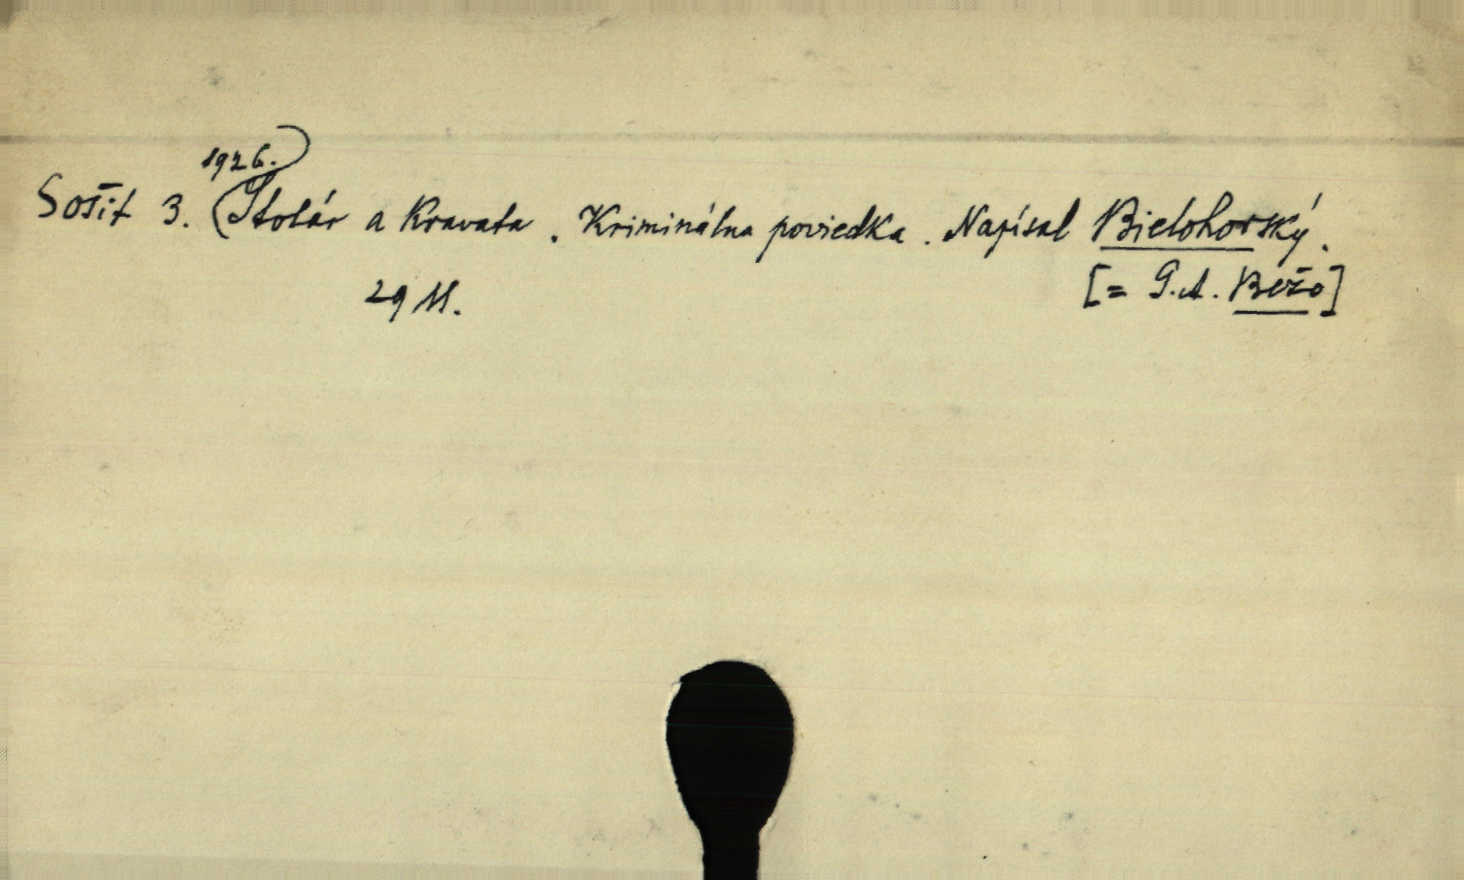 1926.
Sošit 3. Stolár a Kravata. Kriminálna poviedka. Napísal Bielohorský.
29 M. [= G.A. Bežo]